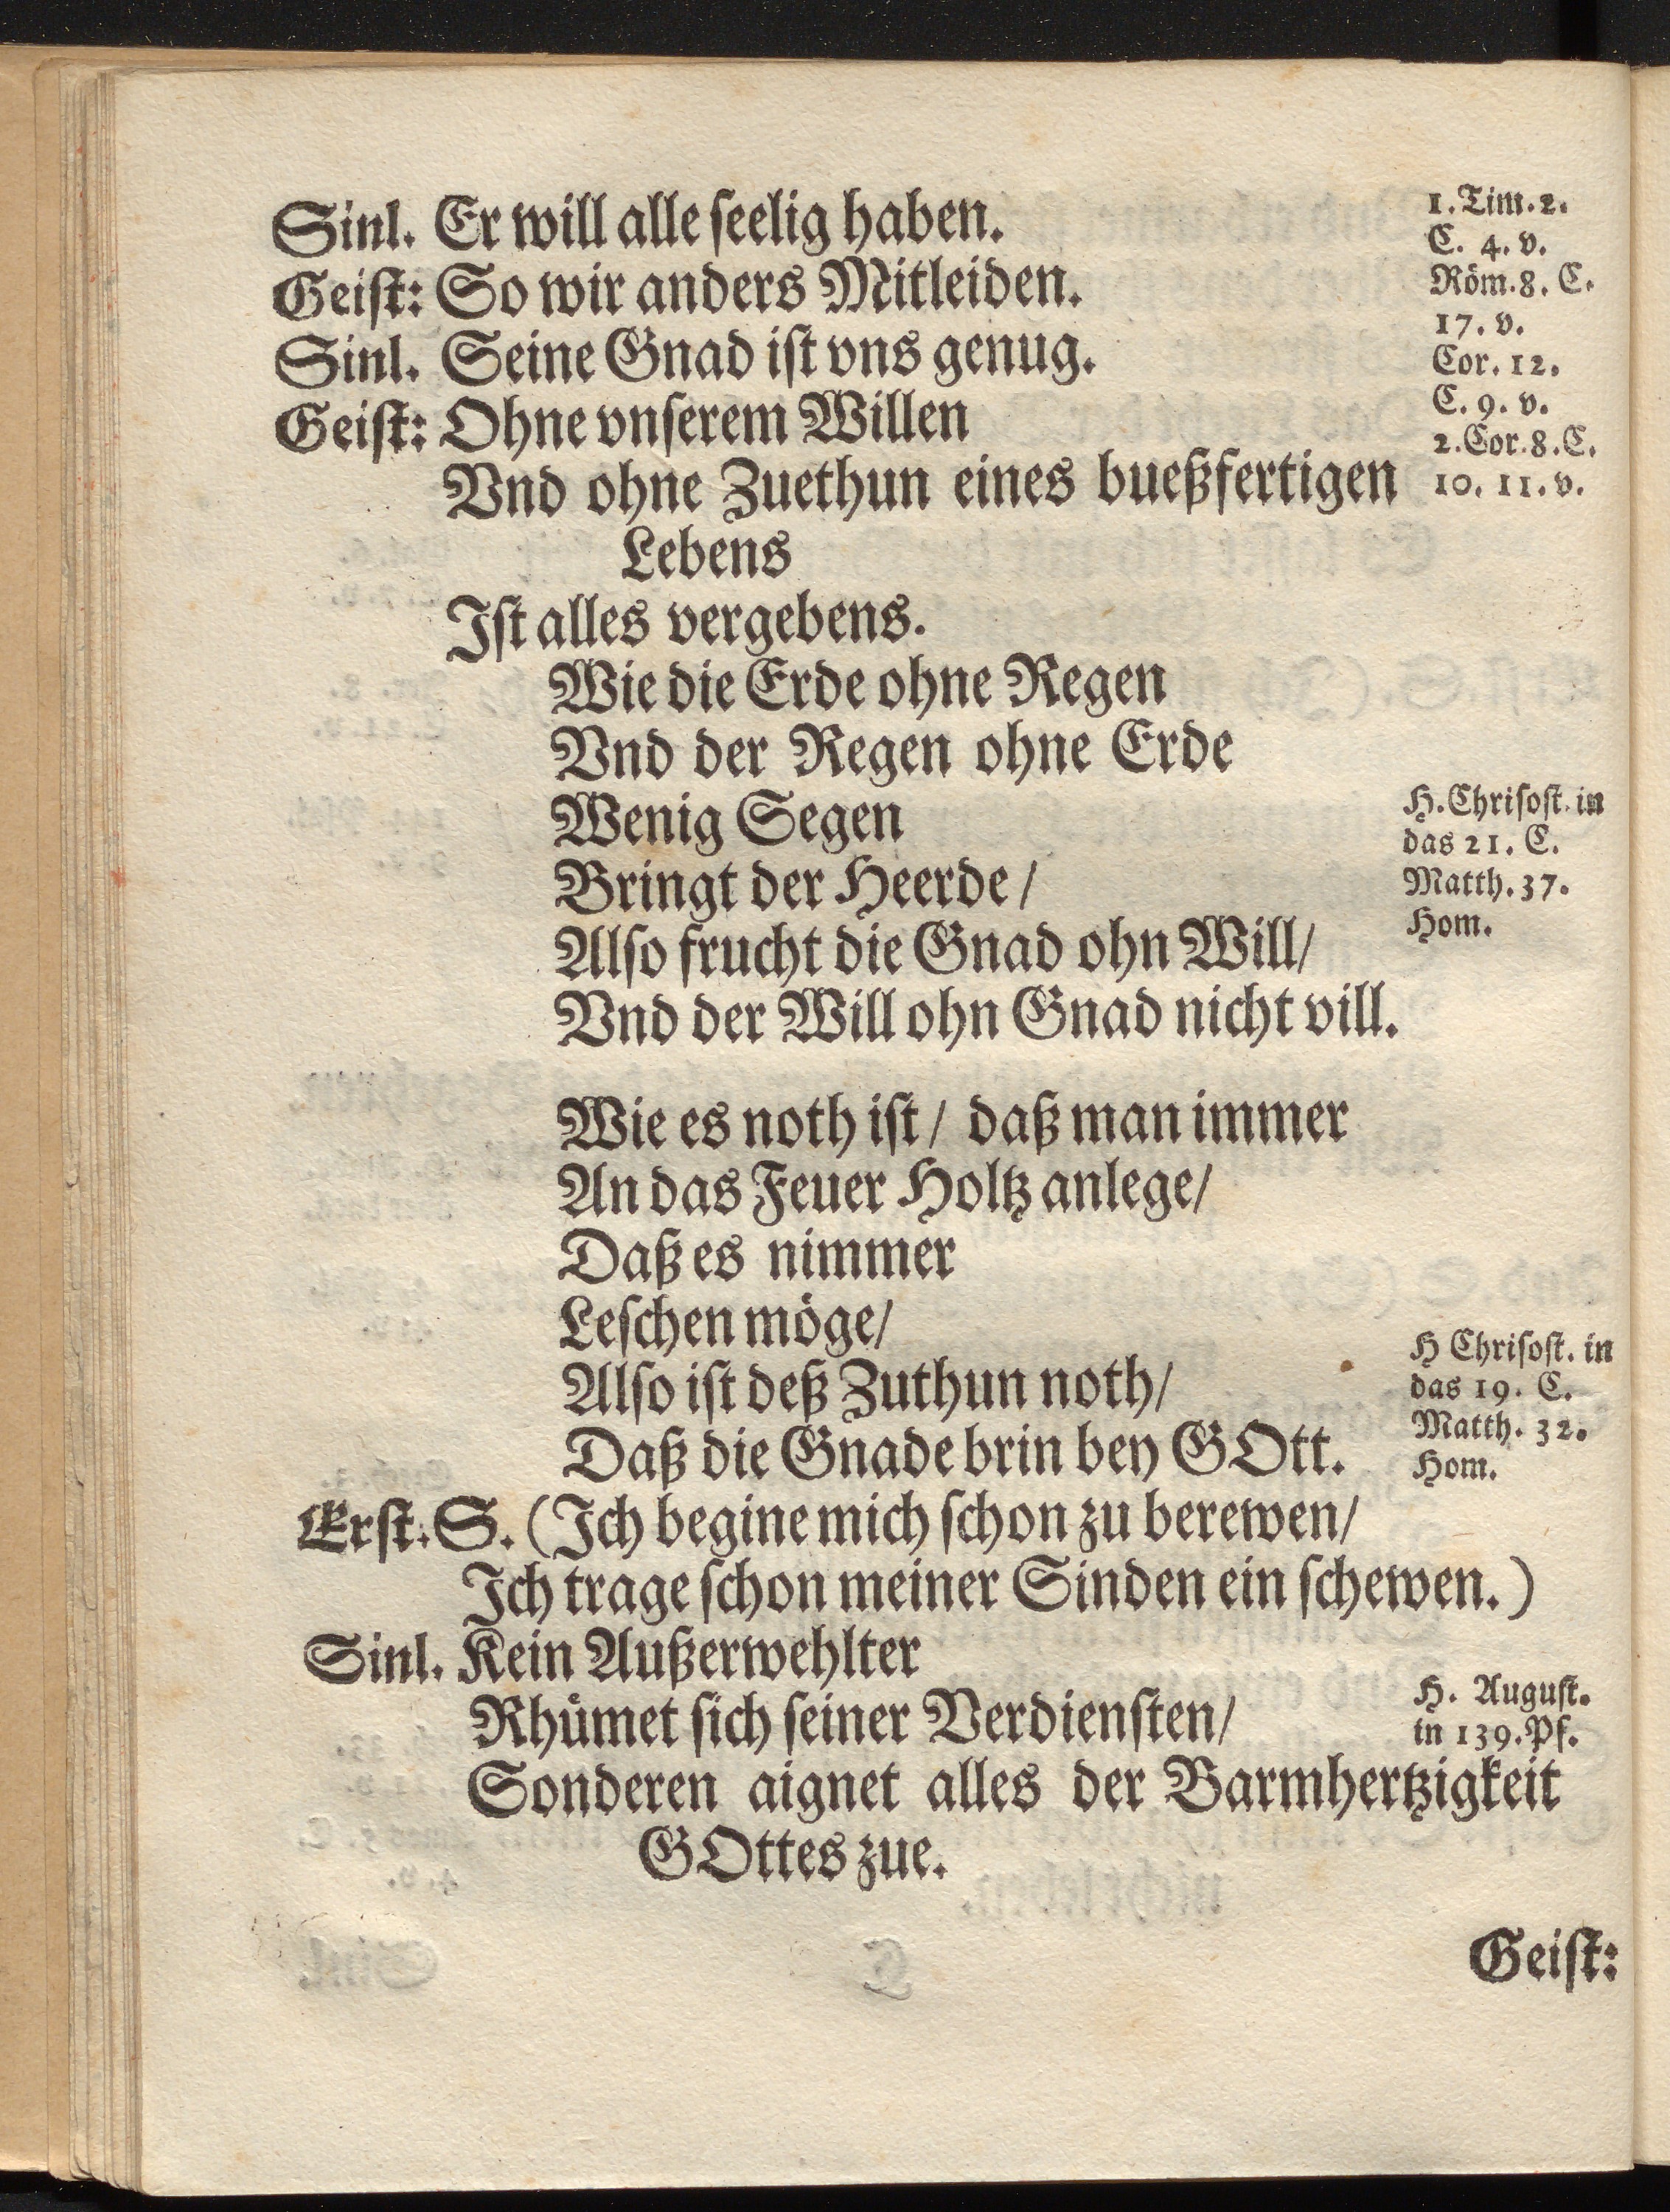 Sinl. Er will alle ſeelig haben.
Geiſt: So wir anders Mitleiden.
Sinl. Seine Gnad iſt vns genug.
Geiſt: Ohne vnſerem Willen
Vnd ohne Zuethun eines bueßfertigen
Lebens
Iſt alles vergebens.
Wie die Erde ohne Regen
Vnd der Regen ohne Erde
Wenig Segen
Bringt der Heerde/
Alſo frucht die Gnad ohn Will/
Vnd der Will ohn Gnad nicht vill.
Wie es noth iſt/ daß man immer
An das Feuer Holtz anlege/
Daß es nimmer
Leſchen möge/
Alſo iſt deß Zuthun noth/
Daß die Gnade brin bey GOtt.
Erſt. S. (Ich begine mich ſchon zu berewen/
Ich trage ſchon meiner Sinden ein ſchewen.)
Sinl. Kein Außerwehlter
Rhümet ſich ſeiner Verdienſten/
Sonderen aignet alles der Barmhertzigkeit
GOttes zue.
Geiſt:
1. Tim. 2.
C. 4. v.
Röm. 8. C.
17. v.
Cor. 12.
C. 9. v.
2. Cor. 8. C.
10. 11. v.
H. Chriſoſt. in
das 21. C.
Matth. 37.
Hom.
H Chriſoſt. in
das 19. C.
Matth. 32.
Hom.
H. Auguſt.
in 139. Pſ.